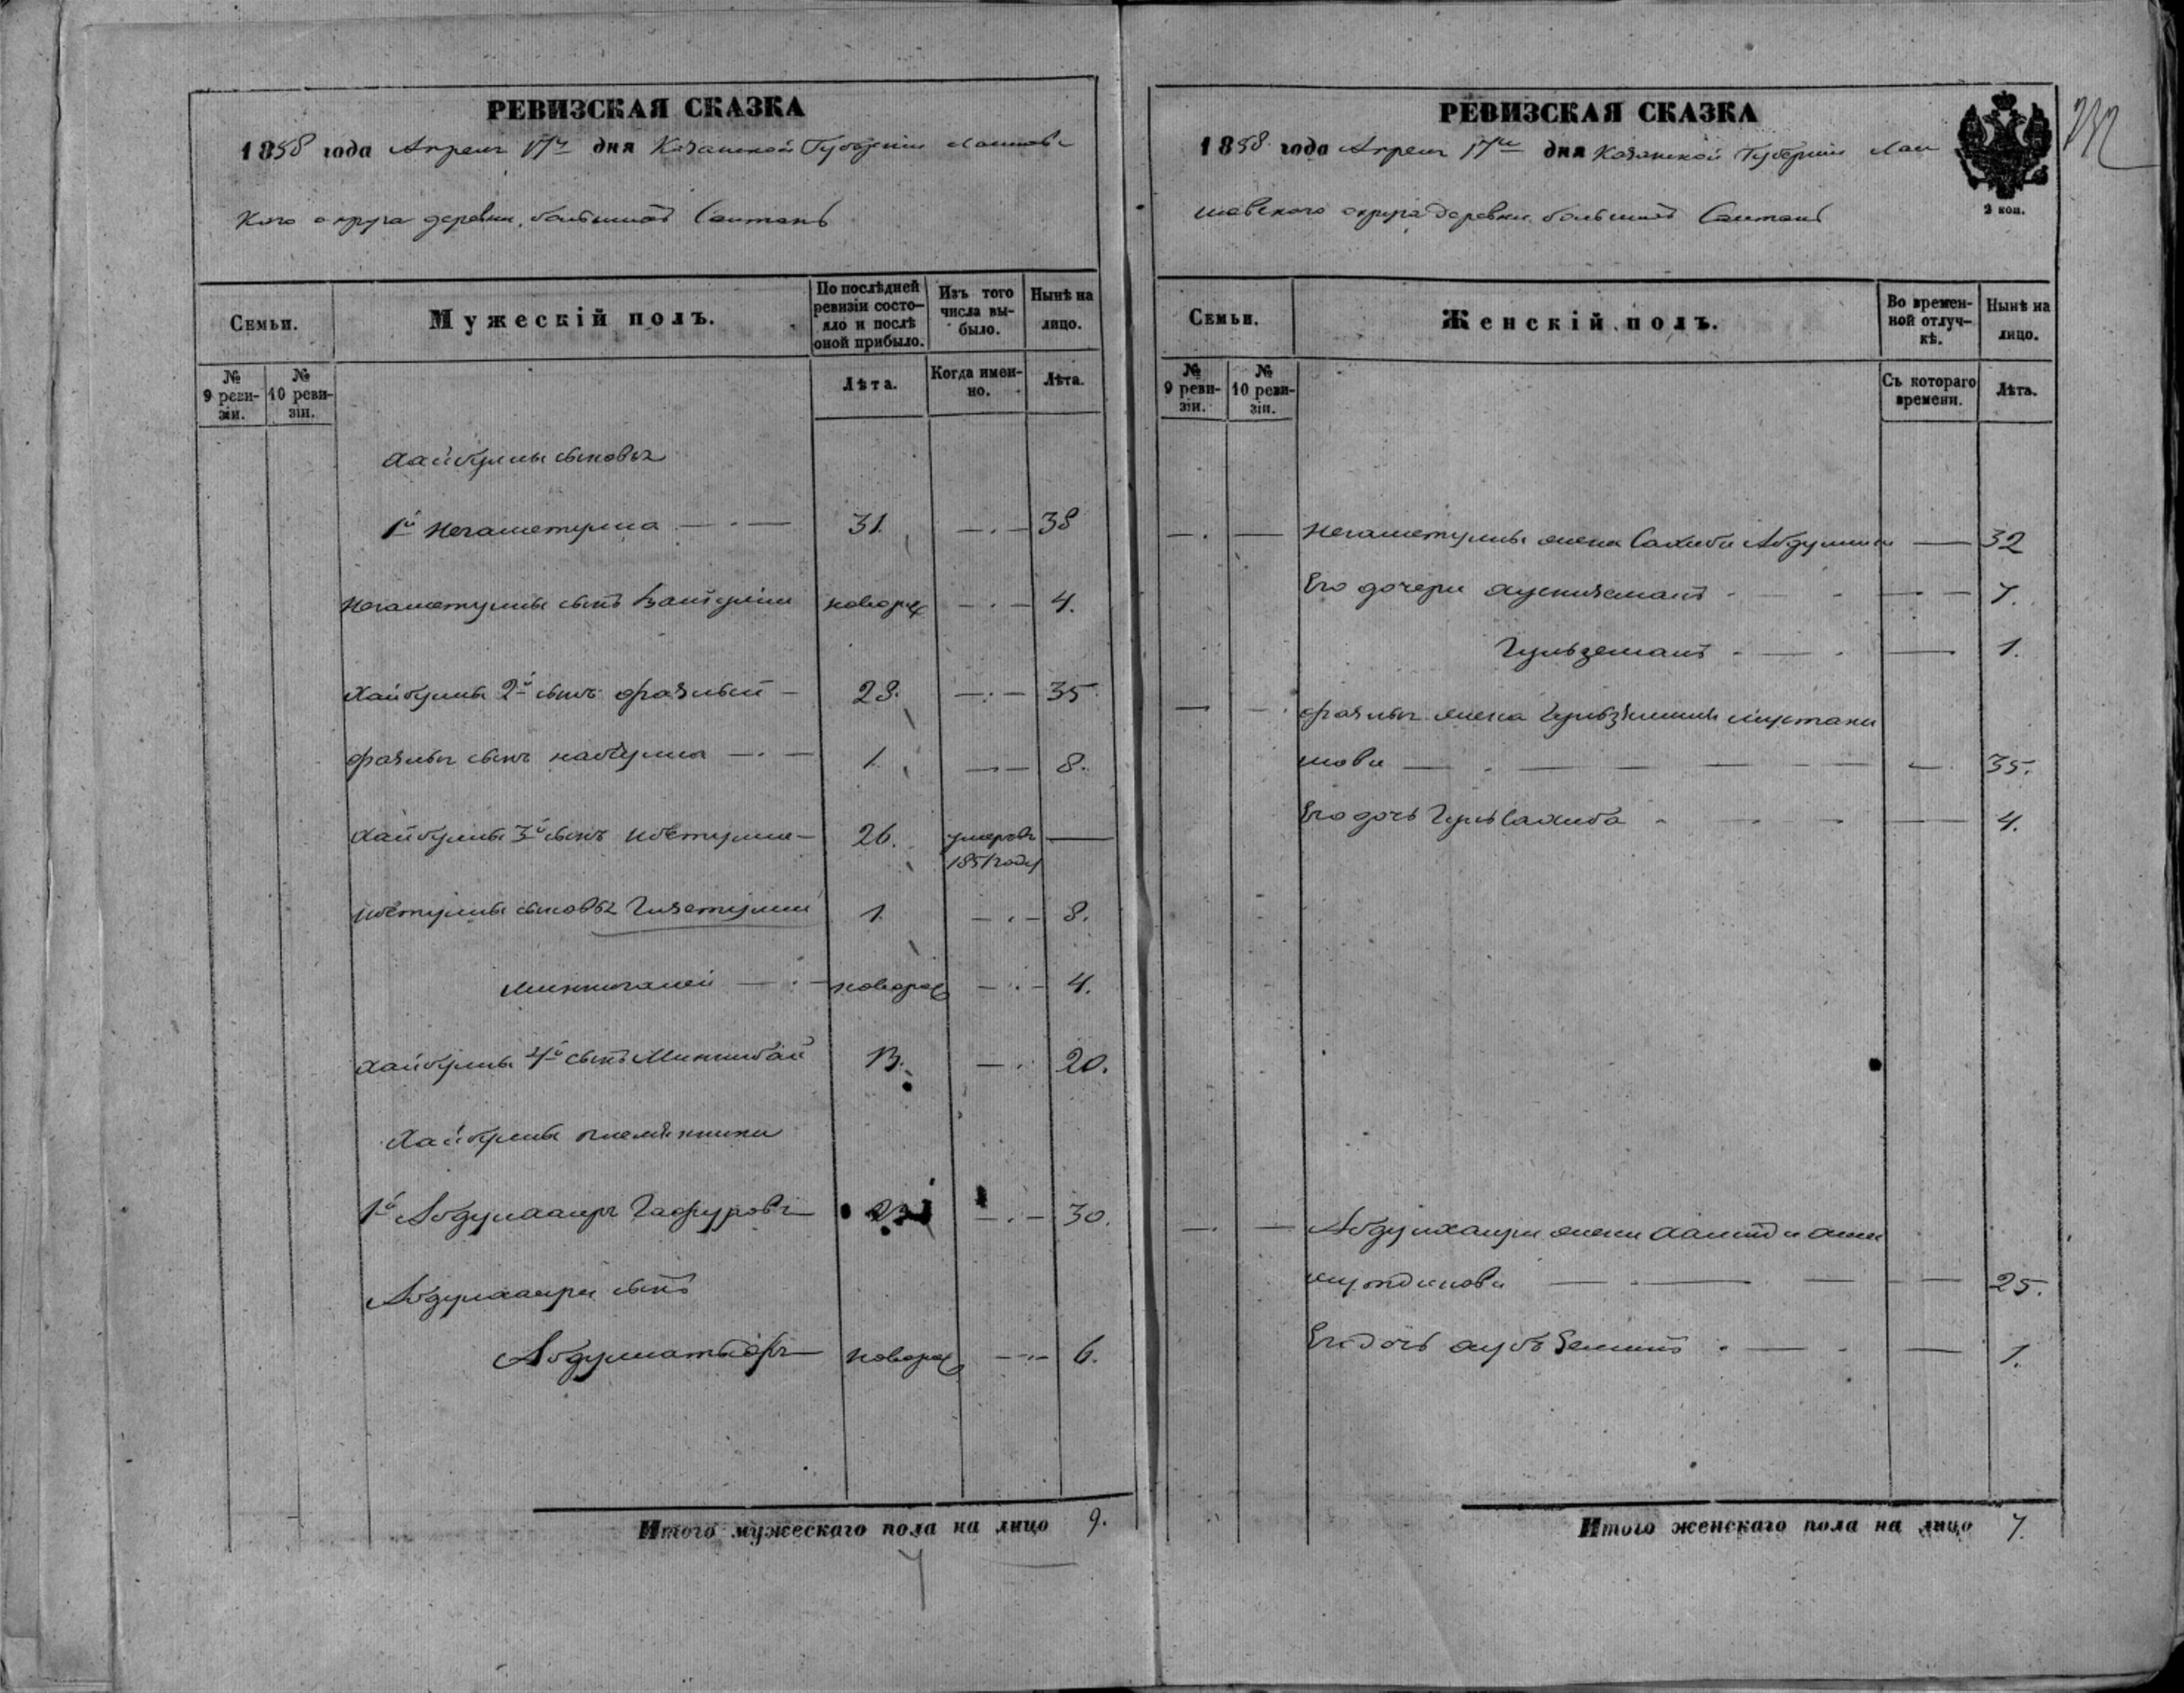 РЕВИЗСКАЯ СКАЗКА
1858 года Апреля 17го дня Казанской Губернии Лаишевс
кого округа деревни большихъ
Семьи.
Мужескій полъ.
По послѣдней ревизіи состояло и послѣ оной прибыло.
Изъ того числа выбыло.
Нынѣ на лицо.
№ 9 ревизіи.
№ 10 ревизіи.
Лѣта.
Когда именно.
Лѣта.
Хайбуллы сыновья
1й Негаметулла 31. 38
Негаметуллы сынъ новорож 4.
Хайбуллы 2й сынъ Фазлый 28. 35
Фазлыя сынъ Набиулла 1. 8.
Хайбуллы 3й сынъ 26. умеръ въ 1851 году
сыновья Гизетулла 1. 8.
Миннигалей новорож 4.
Хайбуллы 4й сынъ Миннибай 13. 20.
Хайбуллы племянники
1й Абдулхаиръ Гафуровъ 30.
Абдулхаира сынъ
новорож 6.
Итого мужескаго пола на лицо 9.
РЕВИЗСКАЯ СКАЗКА
1858 года Апреля 17го дня Казанской Губернии Лаи
шевского округа деревни большихъ
2 коп.
232
Семьи.
Женскій полъ.
Во временной отлучкѣ.
Нынѣ на лицо.
№ 9 ревизіи.
№ 10 ревизіи.
Съ котораго времени.
Лѣта.
Негаметуллы жена Сахиба Абдуллина 32
Его дочери Хусниземанъ 7.
Гульземанъ 1.
Фазлыя жена
35.
Его дочь Гульсахиба 4.
Абдулхаира жена
25.
Его дочь 1.
Итого женскаго пола на лицо 7.